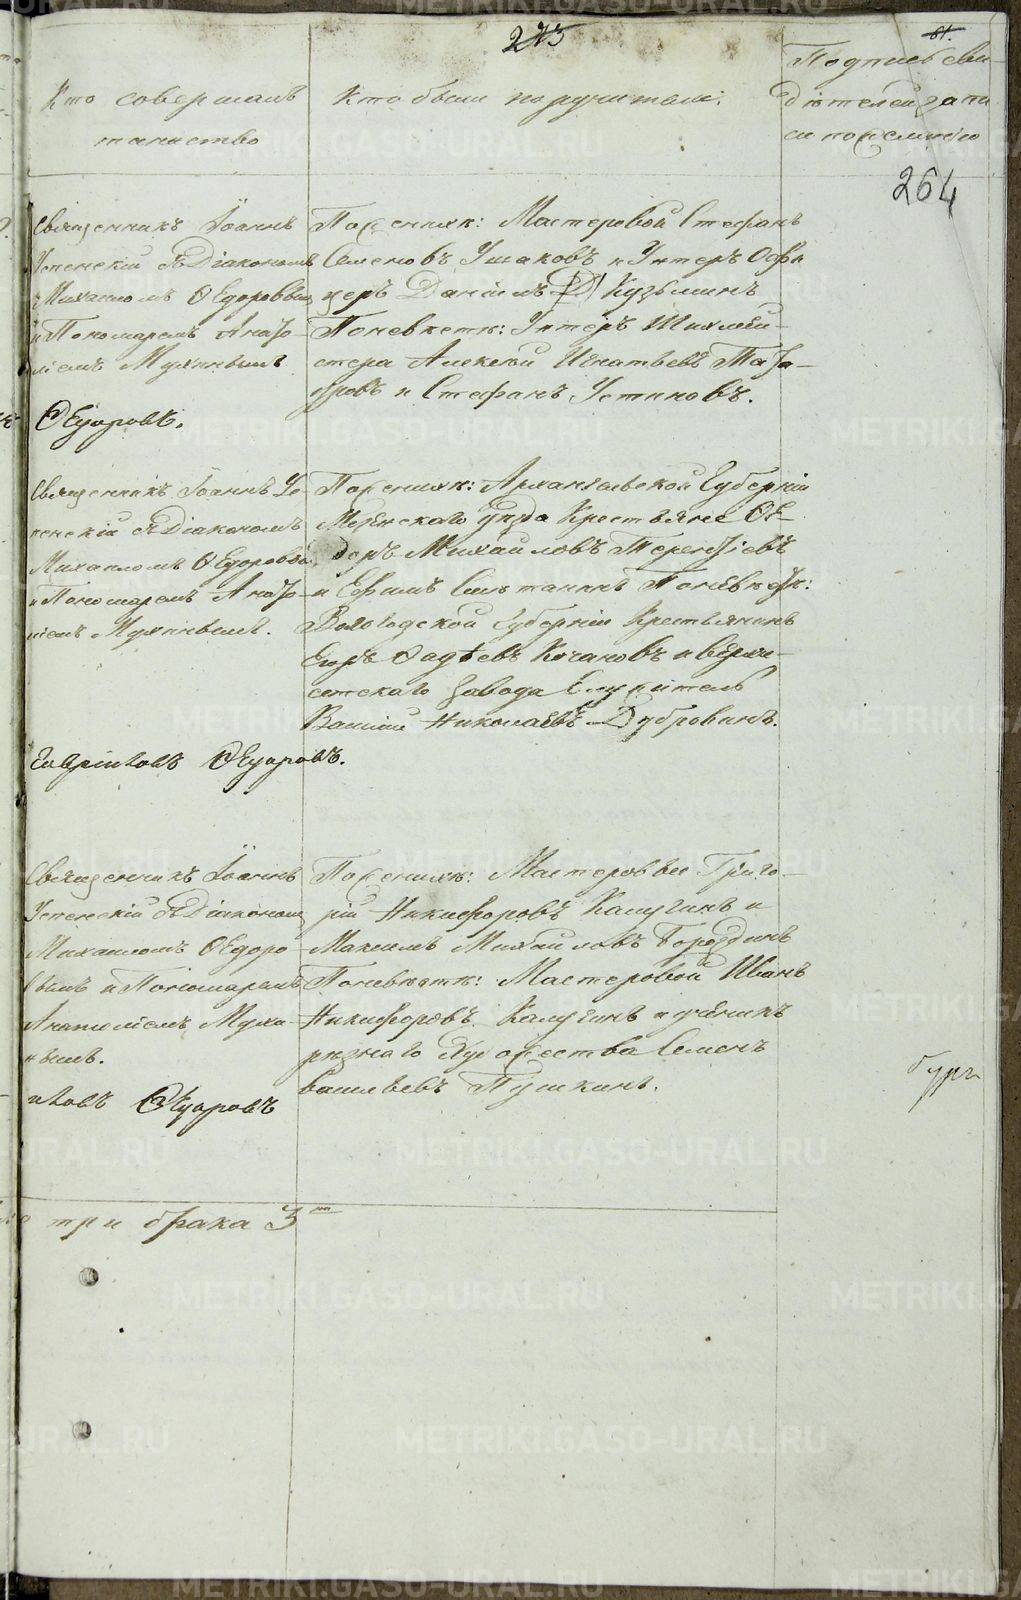 273
81.
Кто совершалъ
таинство
Кто были поручители:
Подпись сви-
дѣтелей запи
си по желанію
264
Священникъ Іоаннъ
Успенскій съ Діакономъ
Михаиломъ Ѳедоровым
и Пономаремъ Анато-
ліемъ Мухинымъ
Ѳедоровъ.
По женихѣ: Мастеровой Стефанъ
Семеновъ Ушаковъ и Унтеръ Офи
церъ Даніилъ Кузьминъ
По невѣстѣ: Унтеръ Шихмей-
стера Алексѣй Игнатьевъ
и Стефанъ Устиновъ.
Священникъ Іоаннъ Ус-
пенскій съ Діакономъ
Михаиломъ Ѳедоровы
и Пономаремъ Анато-
ліемъ Мухинымъ.
Гавріиловъ Ѳедоровъ.
По женихѣ: Архангельской Губерніи
Мезенскаго уѣзда Крестьяне Ѳе-
доръ Михайловъ Терентіевъ
и Ефимъ По невѣстѣ:
Вологодской Губерніи Крестьянинъ
Егоръ Фадѣевъ Кочановъ и Верхи-
сетскаго завода Служитель
Василій Николаевъ Дубровинъ.
Священникъ Іоаннъ
Успенскій съ Діакономъ
Михаиломъ Ѳедоро
вымъ и Пономаремъ
Анатоліемъ Мухи-
нымъ.
иковъ Ѳедоровъ
По женихѣ: Мастеровые Григо-
рій Никифоровъ Калугинъ и
Максимъ Михайловъ Бороздинъ
По невѣстѣ: Мастеровой Иванъ
Никифоровъ Калугинъ и ученикъ
рѣзнаго Художества Семенъ
Васильевъ Пушкинъ.
бургъ
три брака 3
METRIKI.GASO-URAL.RU